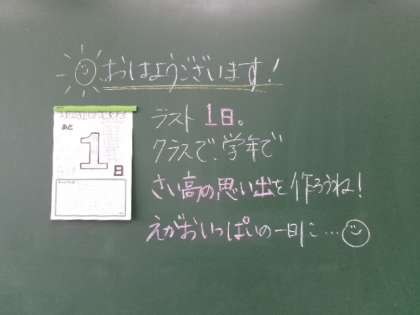 おはようございます!
あと
1
日
ラスト1日。
クラスで、学年で
さい高の思い出を作ろうね!
えがおいっぱいの一日に…